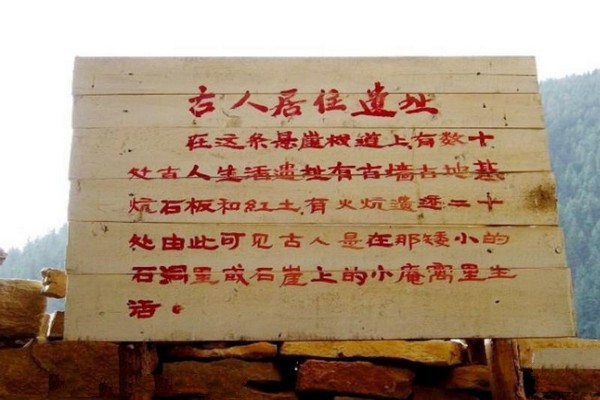 古人居住遗址
在这条悬崖栈道上有数十
处古人生活遗址有古墙古地基
炕石板和红土有火炕遗迹二十
处由此可见古人是在那矮小的
石洞里或石崖上的小庵离里生
活。